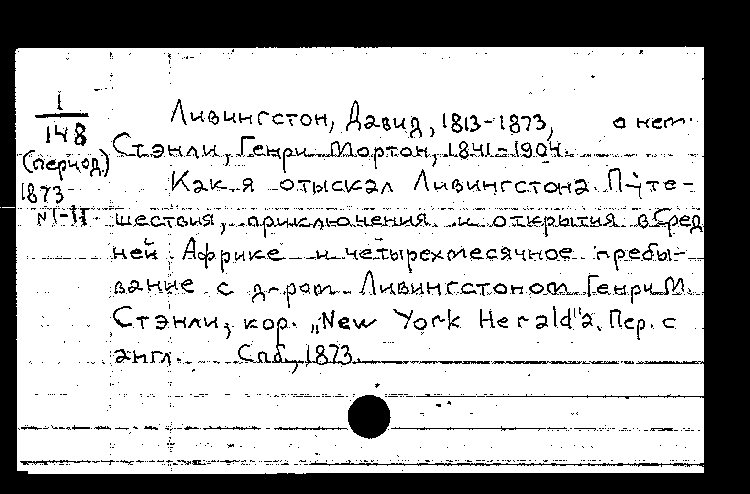 1
148
(период.)
1873
N I-II
Ливингстон, Давид, 1813-1873, о нем.
Стэнли, Генри Мортон, 1841-1904.
Как я отыскал Ливингстона. Путе-
шествия, приключения и открытия в Сред
ней Африке и четырехмесячное пребы-
вание с д-ром Ливингстоном Генри М.
Стэнли, кор. „New York Herald"а. Пер. с
англ. Спб., 1873.